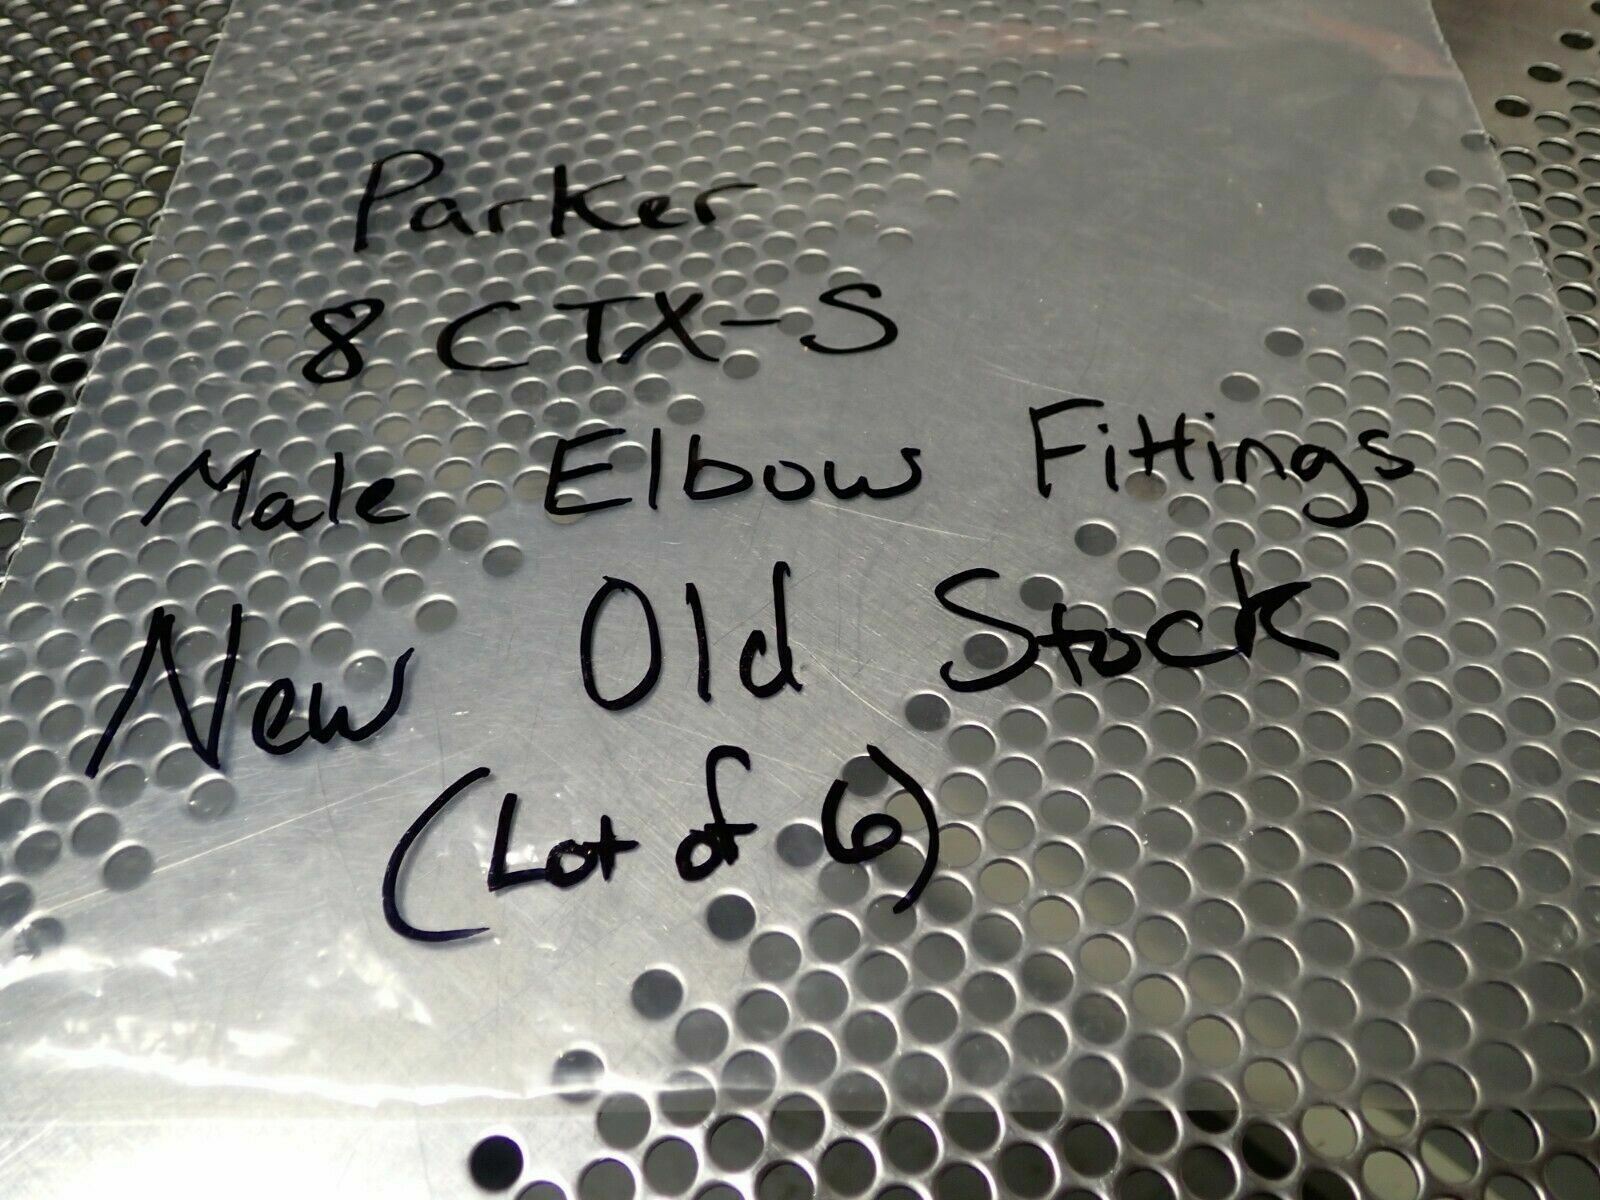 Parker
8 CTX-S
Male Elbow Fittings
New Old Stock
(Lot of 6)